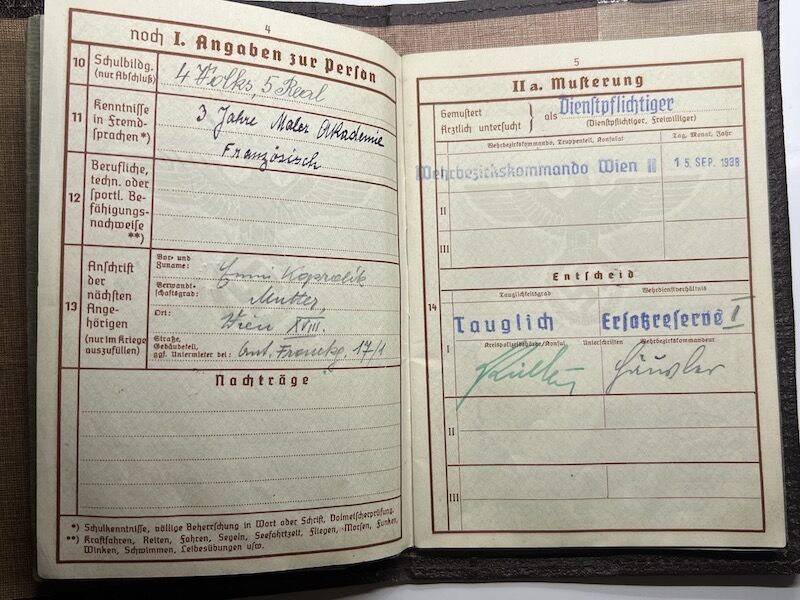 4
noch I. Angaben zur Person
10 Schulbildg. (nur Abschluß)
4 Volks, 5 Real
11 Kenntnisse in Fremdsprachen*)
3 Jahre Maler Akademie
Französisch
12 Berufliche, techn. oder sportl. Befähigungsnachweise **)
13 Anschrift der nächsten Angehörigen (nur im Kriege auszufüllen)
Vor- und Zuname: Emmi Kopralik
Verwandtschaftsgrad: Mutter,
Ort: Wien XVIII.
Straße, Gebäudeteil, ggf. Untermieter bei: Ant. 17/1
Nachträge
*) Schulkenntnisse, völlige Beherrschung in Wort oder Schrift, Dolmetscherprüfung.
**) Kraftfahren, Reiten, Fahren, Segeln, Seefahrtzeit, Fliegen, Morsen, Funken,
Winken, Schwimmen, Leibesübungen usw.
5
II a. Musterung
Gemustert
Ärztlich untersucht } als Dienstpflichtiger
(Dienstpflichtiger, Freiwilliger)
Wehrbezirkskommando, Truppenteil, Konsulat
Tag, Monat, Jahr
Wehrbezirkskommando Wien II
15. SEP. 1938
II
III
Entscheid
14
Tauglichkeitsgrad
Wehrdienstverhältnis
I
Tauglich
Ersatzreserve I
Kreispolizeibehörde/Konsul Unterschriften Wehrbezirkskommandeur
II
III